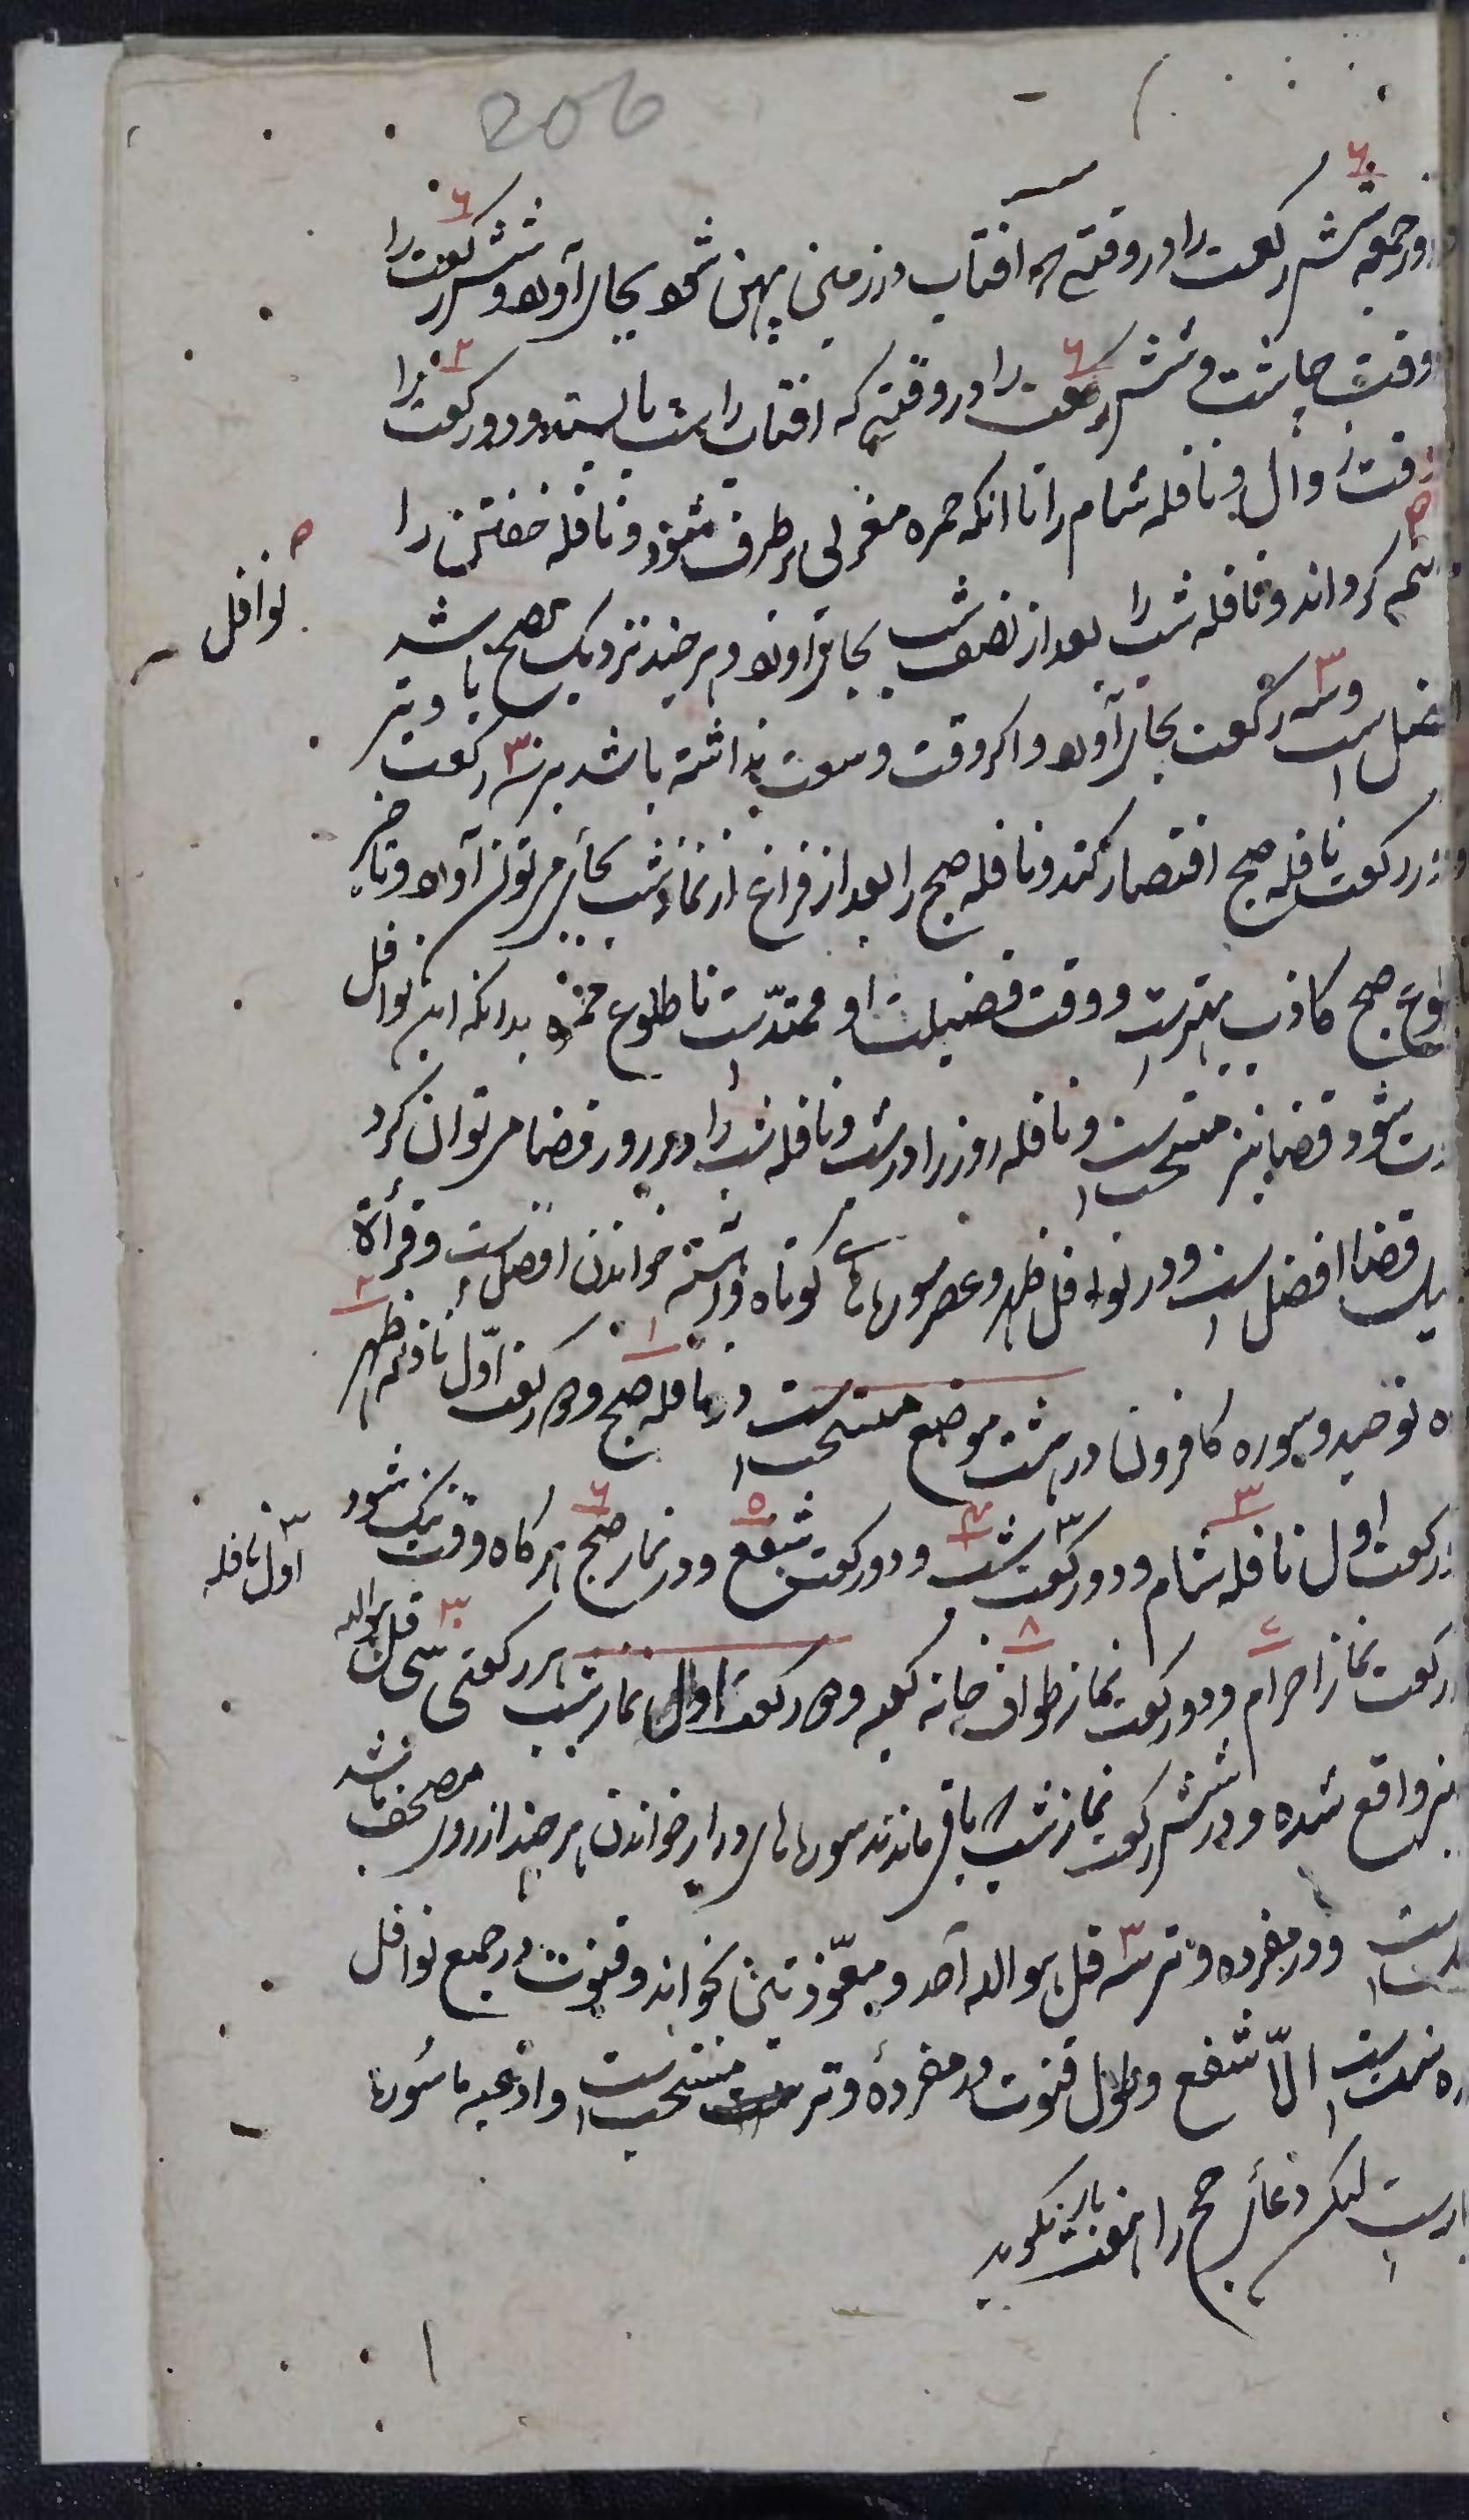 206
روز جمعه شش رکعت را در وقتی که افتاب در زمین پهن شود بجای آورد و شش رکعت را
وقت چاشت و شش رکعت را در وقتیکه افتاب راست بایستد و دو رکعت را
وقت زوال و نافله شام را تا انکه حمره مغربی بر طرف شود و نافله خفتن را
کرده اند و نافله شب را بعد از نصف شب بجای آورد و هر چند نزدیک بصبح باشد
نوافل
افضل است و سه رکعت بجای آورد و اکر وقت وسعت نداشته باشد بر سه رکعت با وتر
و دو رکعت نافله صبح اقتصار کند و نافله صبح را بعد از فراغ از نماز شب بجای می توان آورد و تاخیر
طلوع صبح کاذب بهترست و وقت فضیلت او ممتدّست تا طلوع حمره بدانکه این نوافل
شود قضا نیز مستحب است و نافله روز را در شب و نافله شب را در روز قضا می توان کرد
قضا افضل است و در نوافل ظهر و عصر سورهای کوتاه و اهسته خواندن افضل است و قرأة
توحید و سوره کافرون در هشت موضع مستحب است در نافله صبح ۱ و دو رکعت اوّل نافله ظهر ۲
رکعت اول نافله شام ۳ و دو رکعت شب ۴ و دو رکعت شفع ۵ و در نماز صبح ۶ هر کاه وقت تنک شود
اول نافله
رکعت نماز احرام ۷ و دو رکعت نماز طواف خانه کعبه ۸ و دو رکعت اول نماز شب هر رکعتی سی قل هو الله
نیز واقع شده و در شش رکعت نماز شب که باقی ماندند سورهای دراز خواندن هر چند از روی مصحف باشد
است و در مفرده وتر سه قل هو الله احد و معوّذتین بخواند و قنوت در جمیع نوافل
سنت است الاّ شفع و طول قنوت در مفردهٔ وتر مستحب است و ادعیه ماثوره
لیکن دعای را بکوید